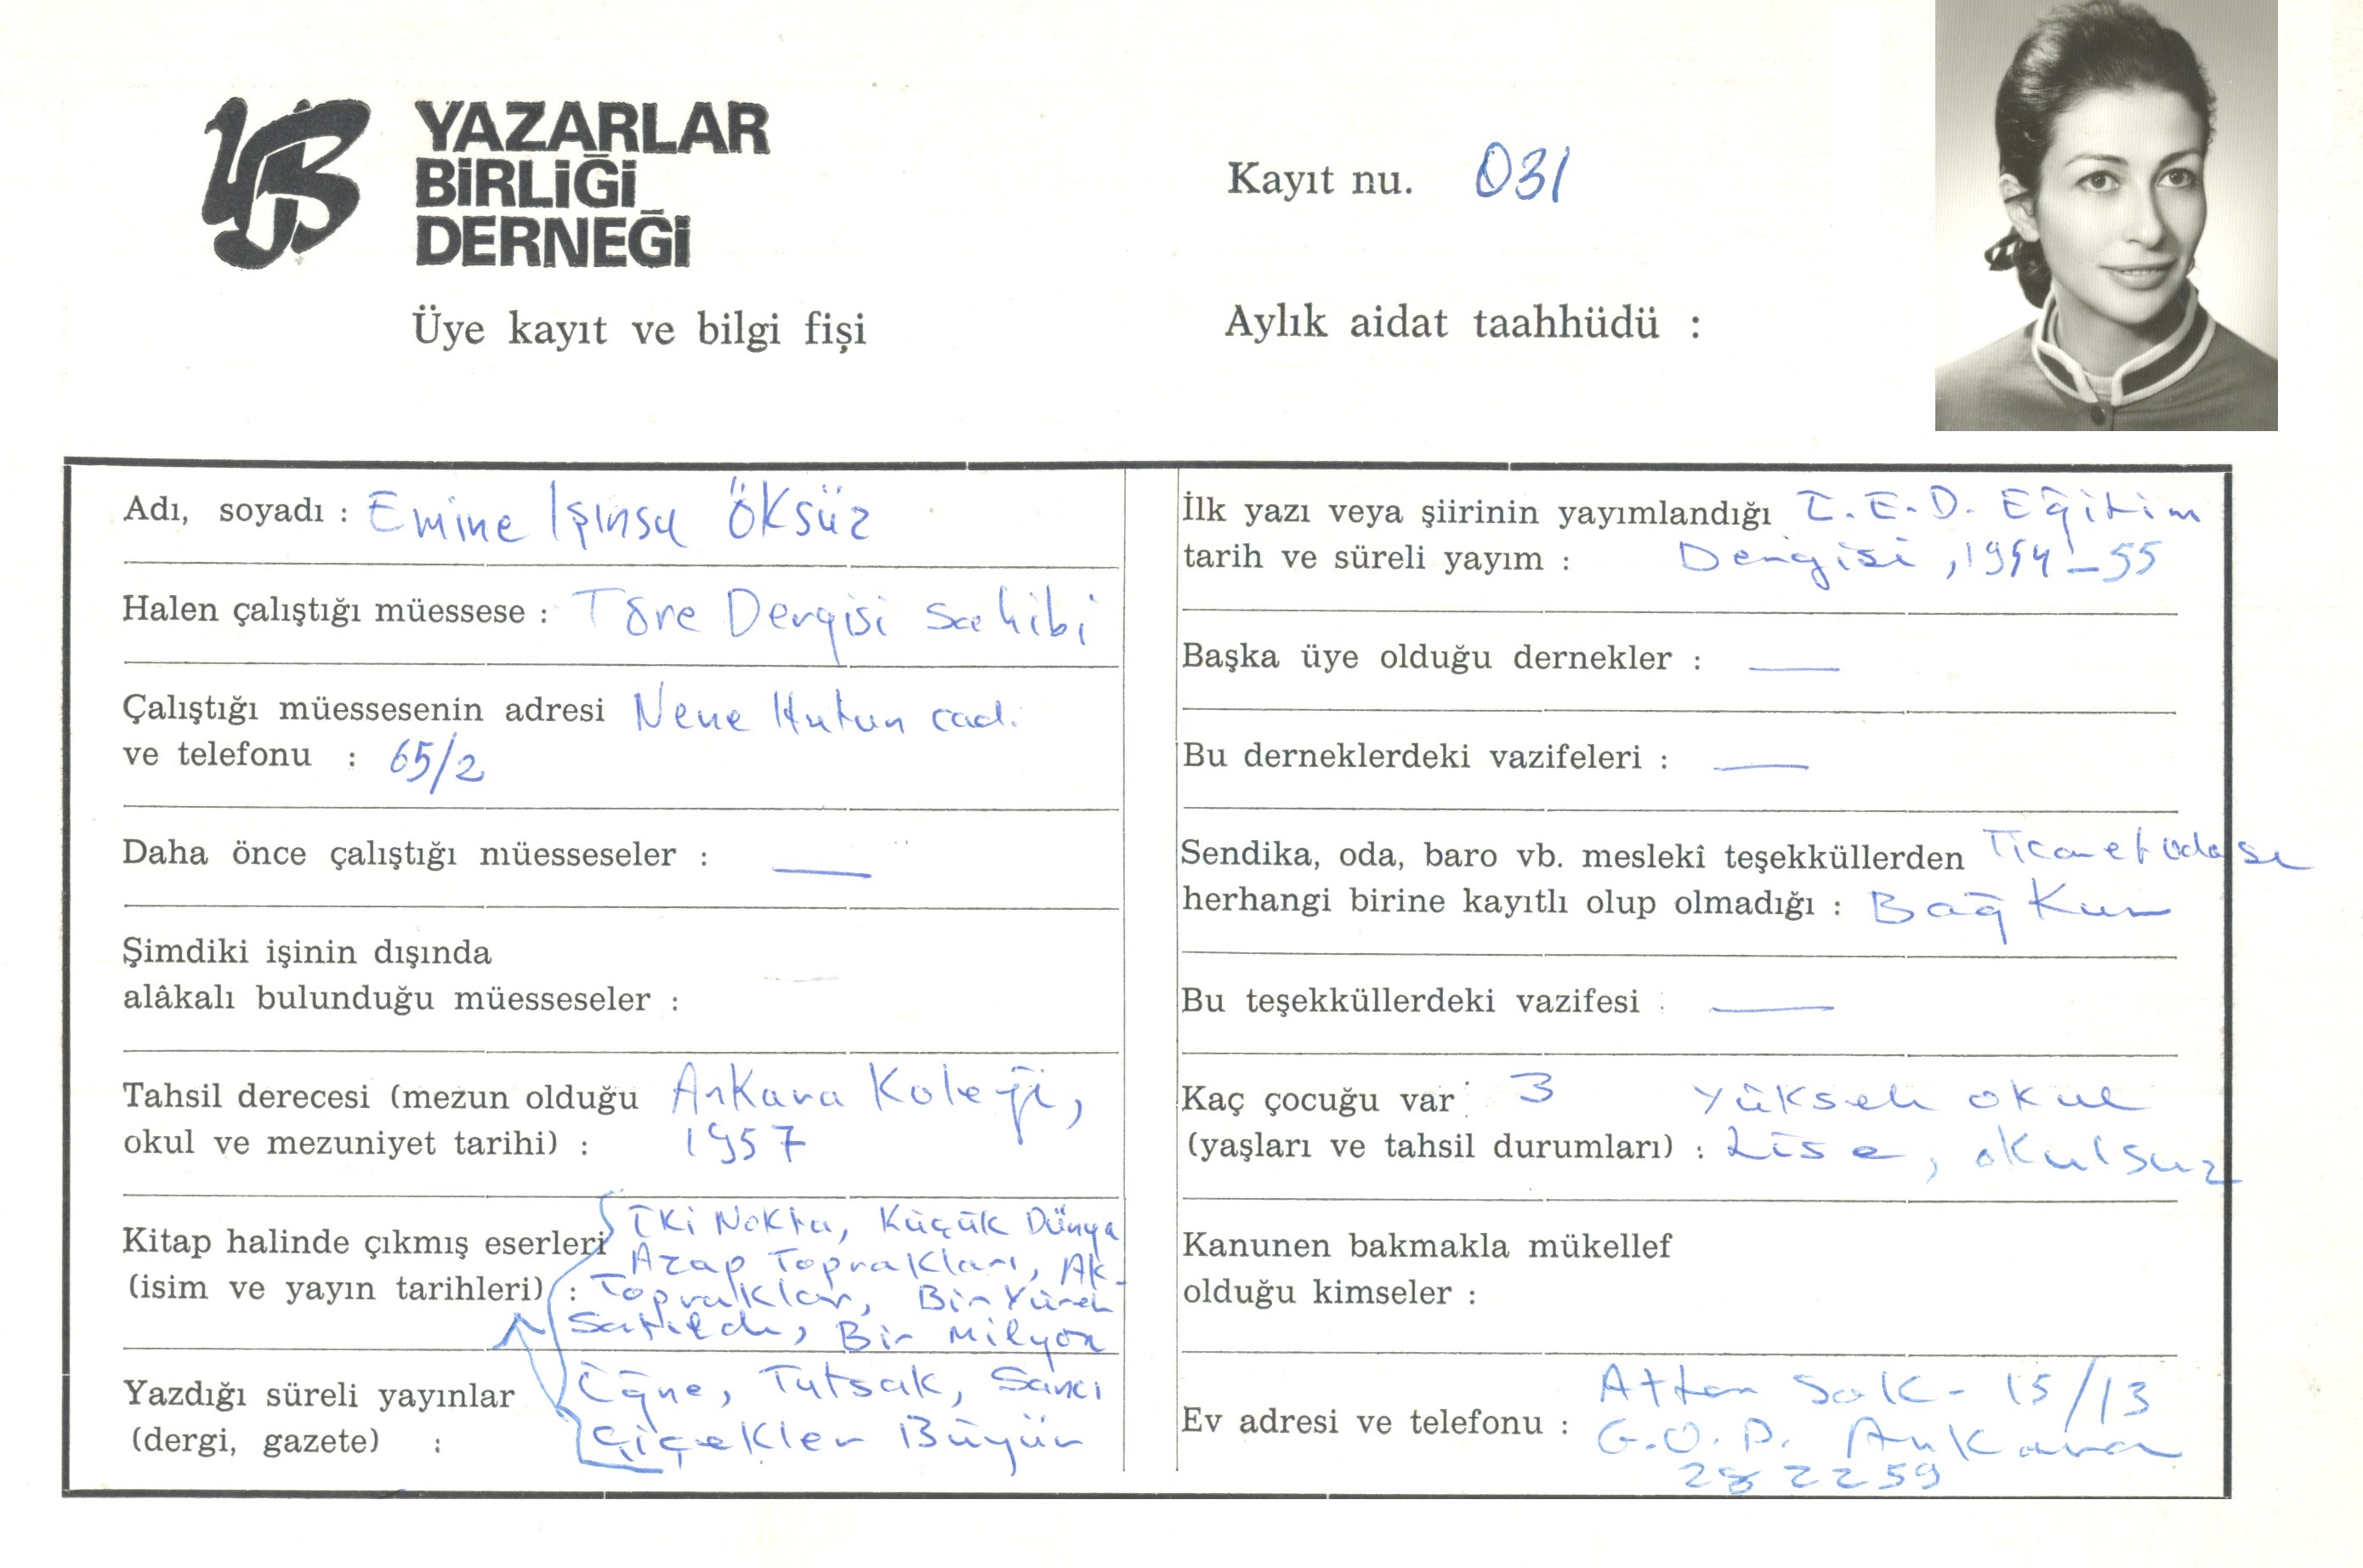 YAZARLAR
BİRLİĞİ
DERNEĞİ
Üye kayıt ve bilgi fişi
Kayıt nu. 031
Aylık aidat taahhüdü :
Adı, soyadı : Emine Işınsu ÖKSÜZ
Halen çalıştığı müessese : Töre Dergisi Sahibi
Çalıştığı müessesenin adresi Nene Hatun cad.
ve telefonu : 65/2
Daha önce çalıştığı müesseseler : —
Şimdiki işinin dışında
alâkalı bulunduğu müesseseler :
Tahsil derecesi (mezun olduğu Ankara Koleji,
okul ve mezuniyet tarihi) : 1957
Kitap halinde çıkmış eserleri İki Nokta, Küçük Dünya
Azap Toprakları, Ak-
(isim ve yayın tarihleri) : Topraklar, Bir Yürek
Satıldı, Bir Milyon
Yazdığı süreli yayınlar İğne, Tutsak, Sancı
(dergi, gazete) : Çiçekler Büyür
İlk yazı veya şiirinin yayımlandığı T.E.D. Eğitim
tarih ve süreli yayım : Dergisi, 1954-55
Başka üye olduğu dernekler : —
Bu derneklerdeki vazifeleri : —
Sendika, oda, baro vb. meslekî teşekküllerden Ticaret odası
herhangi birine kayıtlı olup olmadığı : Bağ Kur
Bu teşekküllerdeki vazifesi : —
Kaç çocuğu var : 3 Yüksek okul
(yaşları ve tahsil durumları) : Lise, okulsuz
Kanunen bakmakla mükellef
olduğu kimseler :
Ev adresi ve telefonu : Attar Sok - 15/13
G.O.P. Ankara
28 22 59